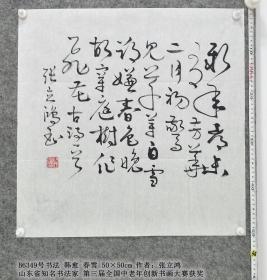 新年都未
有芳华
二月初惊
见草芽白雪
却嫌春色晚
故穿庭树作
飞花古诗一首
张立鸿书
B6349号书法 韩愈 春雪 50×50cm 作者：张立鸿
山东省知名书法家 第三届全国中老年创新书画大赛获奖